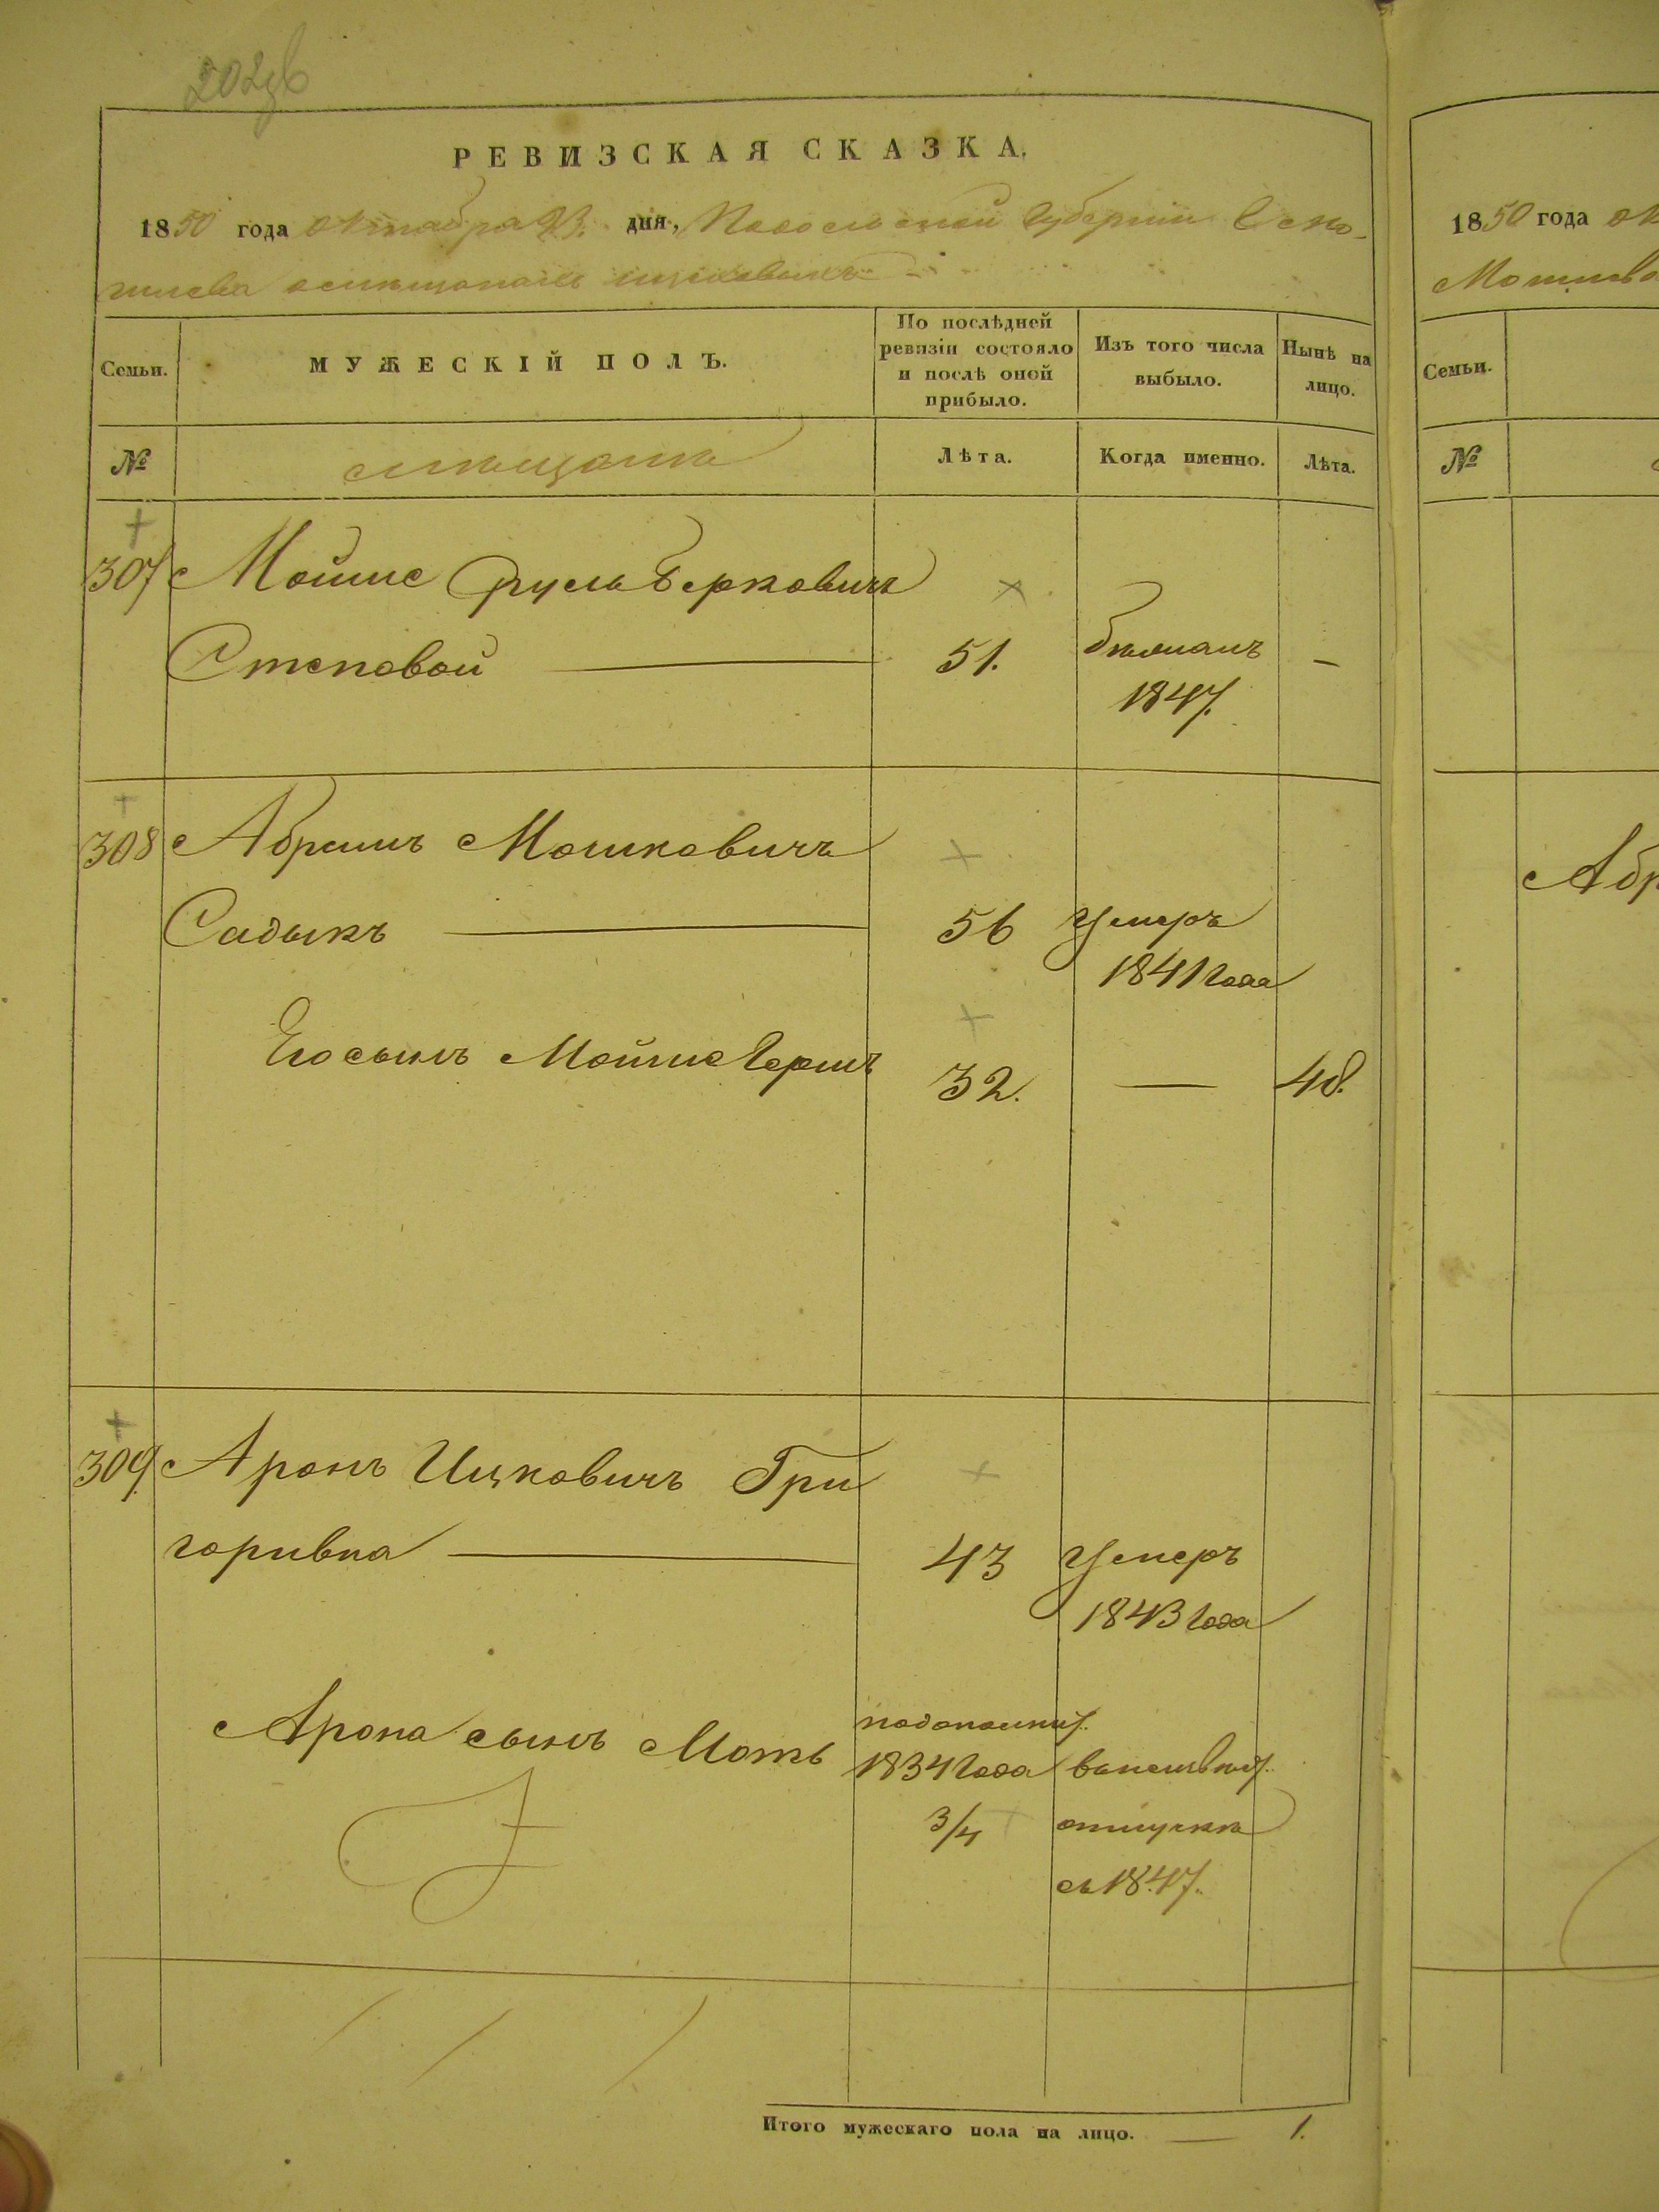 РЕВИЗСКАЯ СКАЗКА.
1850 года октября 23. дня, Подольской Губернии
1850 года
Семьи.
МУЖЕСКІЙ ПОЛЪ.
По послѣдней ревизіи состояло и послѣ оной прибыло.
Изъ того числа выбыло.
Нынѣ на лицо.
Семьи.
№
мѣщане
Лѣта.
Когда именно.
Лѣта.
№
307 Мойше Сруль Берковичъ
Степовой — 51. —
1847.
308 Абрамъ Мошковичъ
Садыкъ — 56 Умеръ
1841 года
Его сынъ Мойше Гершъ 32. — 48.
309 Аронъ Ицковичъ Гри
горивка — 43 Умеръ
1843 года
Арона сынъ
1834 года
3/4 отлучкѣ
съ 1847.
Итого мужескаго пола на лицо. — 1.